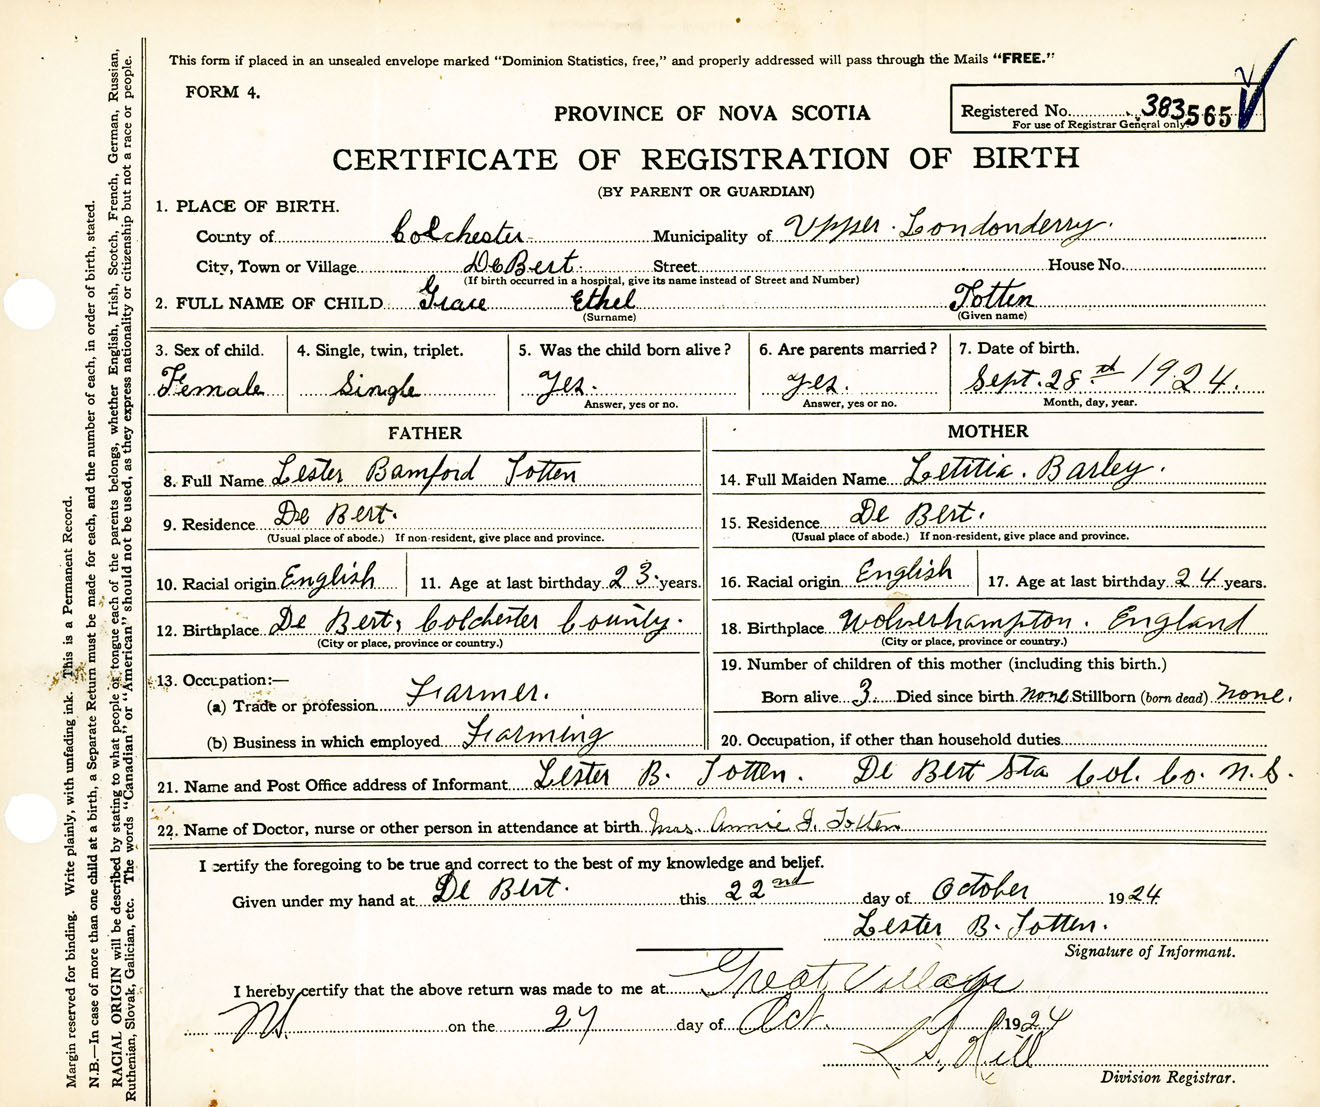 This form if placed in an unsealed envelope marked "Dominion Statistics, free," and properly addressed will pass through the Mails "FREE."
FORM 4.
PROVINCE OF NOVA SCOTIA
Registered No. 383565
For use of Registrar General only.
CERTIFICATE OF REGISTRATION OF BIRTH
(BY PARENT OR GUARDIAN)
1. PLACE OF BIRTH.
County of Colchester Municipality of Upper Londonderry.
City, Town or Village DeBert. Street House No.
(If birth occurred in a hospital, give its name instead of Street and Number)
2. FULL NAME OF CHILD Grace Ethel Totten
(Surname) (Given name)
3. Sex of child. 4. Single, twin, triplet. 5. Was the child born alive? 6. Are parents married? 7. Date of birth.
Female Single Yes. Yes. Sept. 28th 1924.
Answer, yes or no. Answer, yes or no. Month, day, year.
FATHER
8. Full Name Lester Bamford Totten
9. Residence De Bert.
(Usual place of abode.) If non-resident, give place and province.
10. Racial origin English 11. Age at last birthday 23. years.
12. Birthplace De Bert, Colchester County.
(City or place, province or country.)
13. Occupation:—
(a) Trade or profession Farmer.
(b) Business in which employed Farming
MOTHER
14. Full Maiden Name Letitia. Barley.
15. Residence De Bert.
(Usual place of abode.) If non-resident, give place and province.
16. Racial origin English 17. Age at last birthday 24 years.
18. Birthplace Wolverhampton. England
(City or place, province or country.)
19. Number of children of this mother (including this birth.)
Born alive 3. Died since birth none Stillborn (born dead) none.
20. Occupation, if other than household duties
21. Name and Post Office address of Informant Lester B. Totten. De Bert Sta Col. Co. N.S.
22. Name of Doctor, nurse or other person in attendance at birth Mrs. Annie J. Totten
I certify the foregoing to be true and correct to the best of my knowledge and belief.
Given under my hand at De Bert. this 22nd day of October 1924
Lester B. Totten.
Signature of Informant.
I hereby certify that the above return was made to me at Great Village
NS. on the 27 day of Oct. 1924
L. S. Hill
Division Registrar.
Margin reserved for binding. Write plainly, with unfading ink. This is a Permanent Record.
N.B.—In case of more than one child at a birth, a Separate Return must be made for each, and the number of each, in order of birth, stated.
RACIAL ORIGIN will be described by stating to what people or tongue each of the parents belongs, whether English, Irish, Scotch, French, German, Russian,
Ruthenian, Slovak, Galician, etc. The words "Canadian" or "American" should not be used, as they express nationality or citizenship but not a race or people.